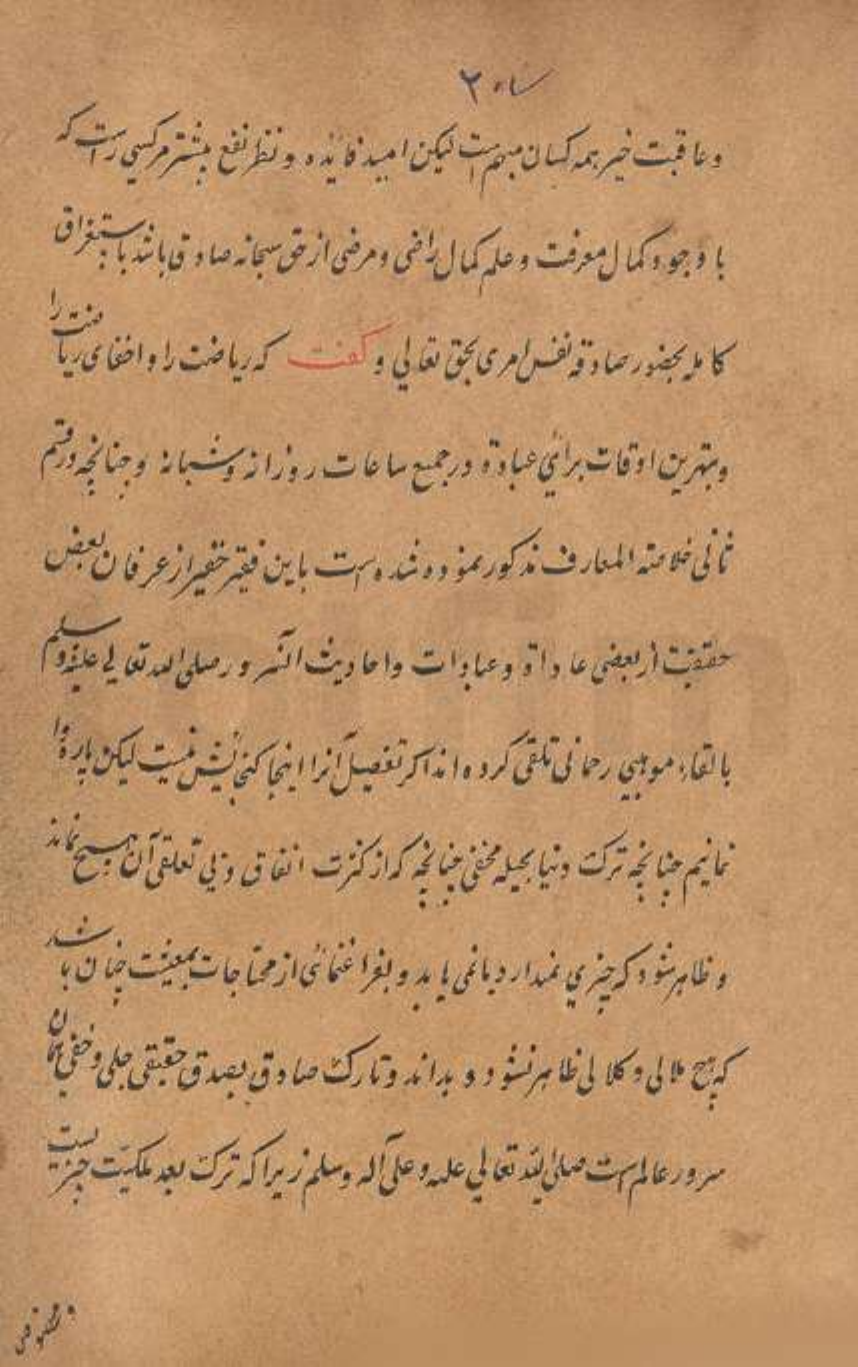 وعاقبت خیر همه کسان مبهم است لیکن امید فائده و نظر نفع بیشتر مر کسی راست که
با وجود کمال معرفت و علم کمال راضی و مرضی از حق سبحانه صادق باشد باستغراق
کامله بحضور صادقه نفس امری بحق تعالی و گفت که ریاضت را و اخفای ریاضت را
و بهترین اوقات برائی عبادة و در جمیع ساعات روزانه و شبانه و چنانچه در قسم
ثانی خلاصة المعارف مذکور نموده شده است باین فقیر حقیر از عرفان بعض
حقیقت از بعضی عاداة و عبادات و احادیث آنسرور صلی الله تعالی علیه وسلم
بالقاء موهبی رحمانی تلقی کرده اند اگر تفصیل آنرا اینجا گنجایش نیست لیکن پاره وا
نمائیم چنانچه ترک دنیا بحیله مخفی چنانچه که از کثرت انفاق و بی تعلقی آن هیچ نماند
و ظاهر شود که چیزی ندارد یا نمی یابد و اغنائی از محتاجات بمعیشت چنان باشد
که هیچ ملالی و کلالی ظاهر نشود و بداند و تارک صادق بصدق حقیقی جلی و خفی همان
سرور عالم است صلی الله تعالی علیه و علی آله وسلم زیرا که ترک بعد ملکیت چیزیست